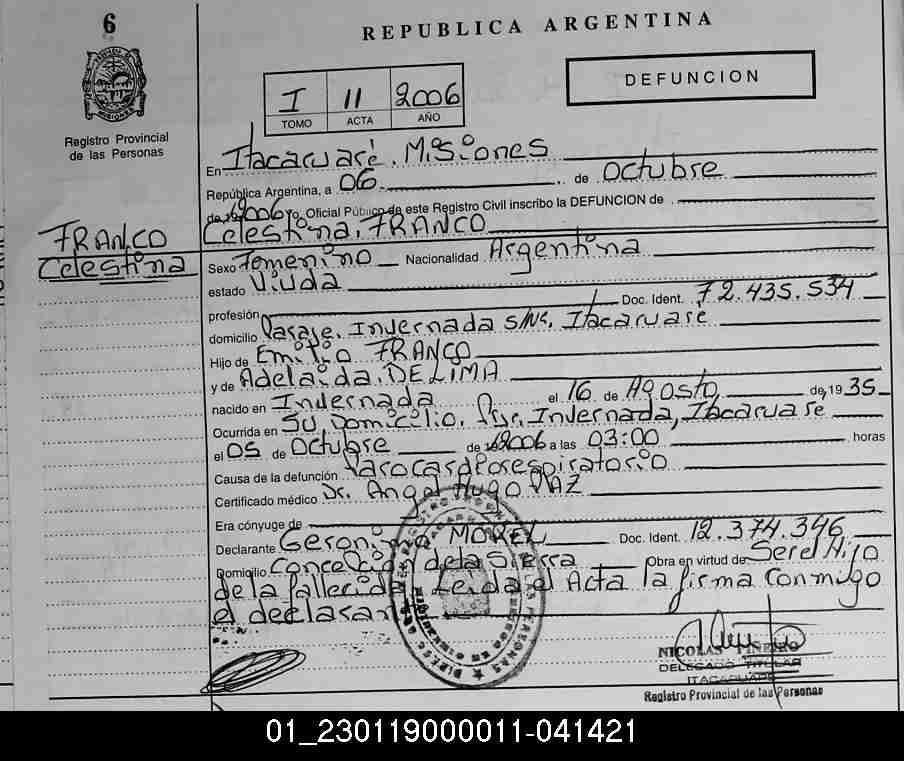 6
REPUBLICA ARGENTINA
DEFUNCION
I 11 2006
TOMO ACTA AÑO
Registro Provincial
de las Personas
En Itacaruaré. Misiones
República Argentina, a 06 de octubre
de 2006 yo, Oficial Público de este Registro Civil inscribo la DEFUNCION de
FRANCO
Celestina
Celestina. FRANCO
Sexo Femenino Nacionalidad Argentina
estado Viuda
profesión Doc. Ident. 72.435.534
domicilio Paraje. Invernada S/Nº. Itacaruaré
Hijo de Emilio FRANCO
y de Adelaida. DE LIMA
nacido en Invernada el 16 de Agosto de 1935
Ocurrida en Su Domicilio. Invernada, Itacaruare
el 05 de octubre de 2006 a las 03:00 horas
Causa de la defunción Parocardiorespiratorio
Certificado médico Dr. Angel Hugo PAZ
Era cónyuge de
Declarante Geronimo MOREL Doc. Ident. 12.374.346
Domicilio Concepción de la Sierra Obra en virtud de Ser el Hijo
de la fallecida Leida el Acta la firma conmigo
el declarante
NICOLAS PIÑEIRO
DELEGADO TITULAR
ITACARUARE
Registro Provincial de las Personas
01_230119000011-041421